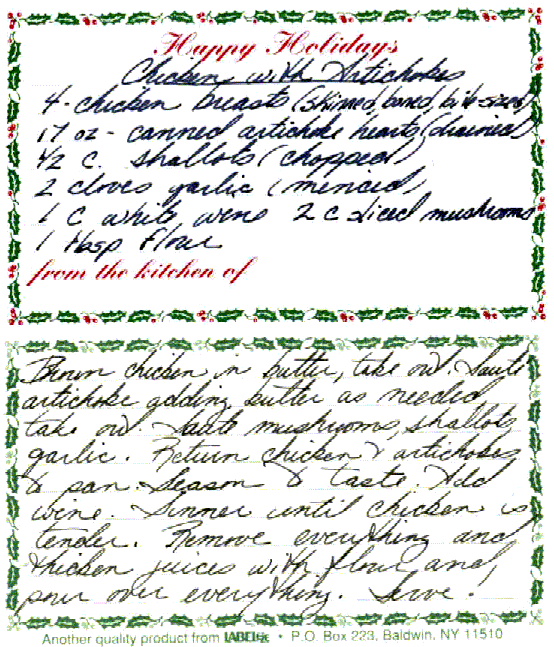 Happy Holidays
Chicken with Artichokes
4 - chicken breasts (skinned, boned, bite-sized)
17 oz - canned artichoke hearts (drained)
1/2 c. shallots (chopped)
2 cloves garlic (minced)
1 C white wine 2 c sliced mushrooms
1 tbsp flour
from the kitchen of
Brown chicken in butter, take out. Sauté
artichoke adding butter as needed
take out. Sauté mushrooms, shallots,
garlic. Return chicken & artichokes
to pan. Season to taste. Add
wine. Simmer until chicken is
tender. Remove everything and
thicken juices with flour and
pour over everything. Serve!
Another quality product from LABELfile • P.O. Box 223, Baldwin, NY 11510